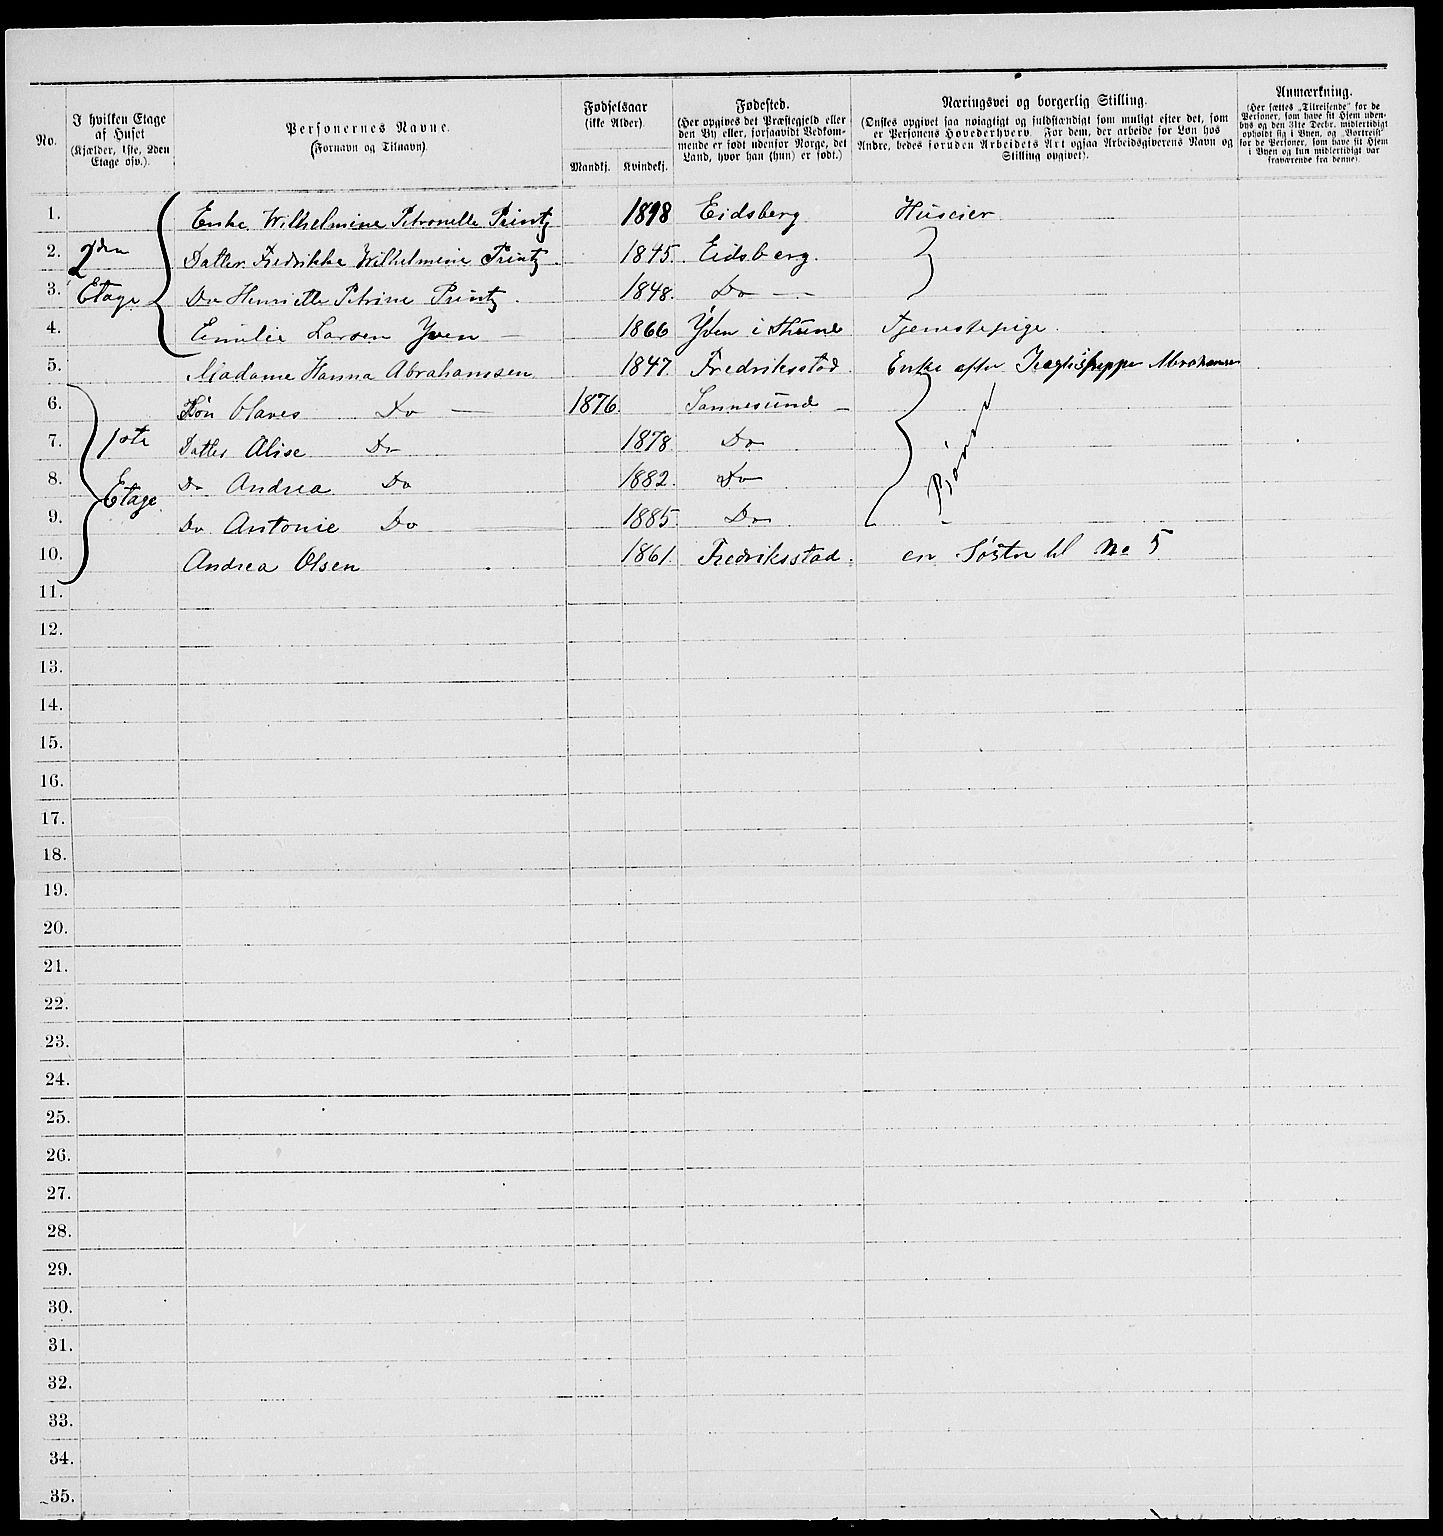 No.
I hvilken Etage af Huset (Kjælder, 1ste, 2den Etage osv.).
Personernes Navne. (Fornavn og Tilnavn)
Fødselsaar (ikke Alder). Mandkj. Kvindekj.
Fødested. (Her opgives det Præstegjeld eller den By eller, forsaavidt Vedkommende er født udenfor Norge, det Land, hvor han (hun) er født.)
Næringsvei og borgerlig Stilling. (Ønskes opgivet saa nøiagtigt og fuldstændigt som muligt efter det, som er Personens Hovederhverv. For dem, der arbeide for Løn hos Andre, bedes foruden Arbeidets Art ogsaa Arbeidsgiverens Navn og Stilling opgivet).
Anmærkning. (Her sættes „Tilreisende" for de Personer, som have sit Hjem udenbys og den 31te Decbr. midlertidigt opholdt sig i Byen, og „Bortreist" for de Personer, som have sit Hjem i Byen og kun midlertidigt var fraværende fra denne).
2den Etage
1. Enke Wilhelmine Petronelle Printz 1818 Eidsberg Huseier
2. Datter Fredrikke Wilhelmine Printz 1845. Eidsberg.
3. Do Henriette Petrine Printz. 1848. Do
4. Emilie Larsen Yven 1866 Yven i Thune Tjenestepige.
5. Madame Hanna Abrahamsen 1847. Fredriksstad Enke efter Abrahamsen
1ste Etage
6. Søn Olaves Do 1876. Sannesund
7. Datter Alise Do 1878. Do
8. Do Andrea Do 1882. Do
9. Do Antonie Do 1885. Do
10. Andrea Olsen 1861. Fredriksstad. en Søster til No 5
11.
12.
13.
14.
15.
16.
17.
18.
19.
20.
21.
22.
23.
24.
25.
26.
27.
28.
29.
30.
31.
32.
33.
34.
35.